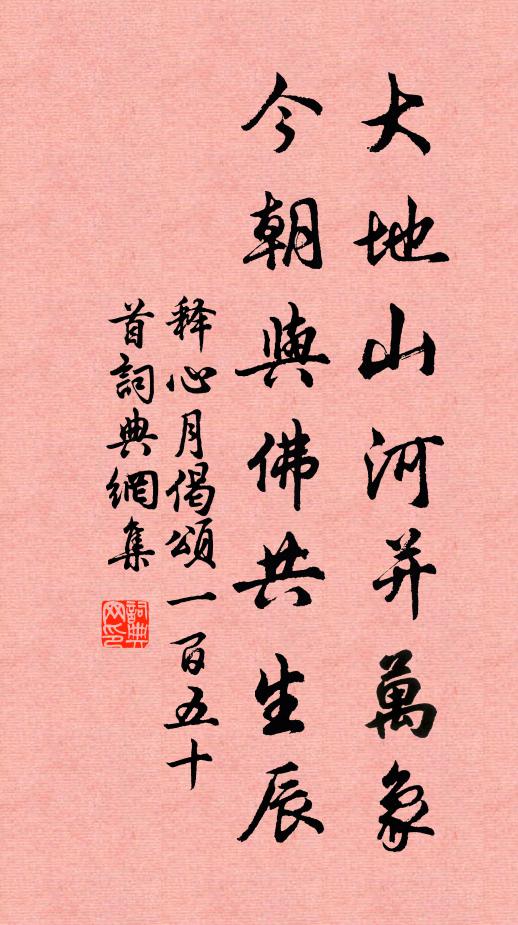 大地山河并萬象
今朝與佛共生辰
释心月偈頌一百五十
首詞典網集
詞典
网印